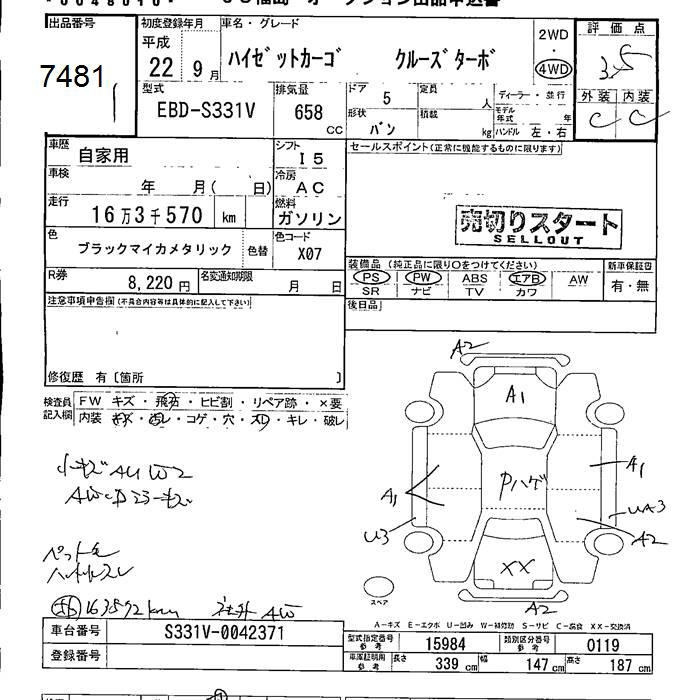 出品番号
7481
初度登録年月
平成
22年 9月
車名・グレード
ハイゼットカーゴ クルーズターボ
2WD
4WD
評価点
3.5
外装 内装
C C
型式
EBD-S331V
排気量
658
CC
ドア 5
形状
バン
定員
人
積載
kg
ディーラー・並行
モデル年式 年
ハンドル 左・右
車歴
自家用
シフト
I5
車検
年 月( 日)
冷房
AC
走行
16万3千570 km
燃料
ガソリン
色
ブラックマイカメタリック
色替
色コード
X07
R券
8,220円
名変通知期限
月 日
セールスポイント(正常に機能するものに限ります)
売切りスタート
SELLOUT
装備品 (純正品に限り○をつけてください)
PS PW ABS エアB AW
SR ナビ TV カワ
新車保証書
有・無
後日品
注意事項申告欄(不具合内容等は具体的に記入して下さい)
修復歴 有〔箇所 〕
検査員記入欄
FW キズ・飛石・ヒビ割・リペア跡・×要
内装 キズ・汚レ・コゲ・穴・スレ・キレ・破レ
小キズ AU W2
ペット毛
ハンドルスレ
163592km 社外AW
A2
A1
A1
A1
Pハゲ
U3
UA3
A2
XX
A2
スペア
A-キズ E-エクボ U-凹み W-補修跡 S-サビ C-腐食 XX-交換済
車台番号
S331V-0042371
登録番号
型式指定番号
参考
15984
類別区分番号
参考
0119
車庫証明用
参考
長さ 339 cm
幅 147 cm
高さ 187 cm